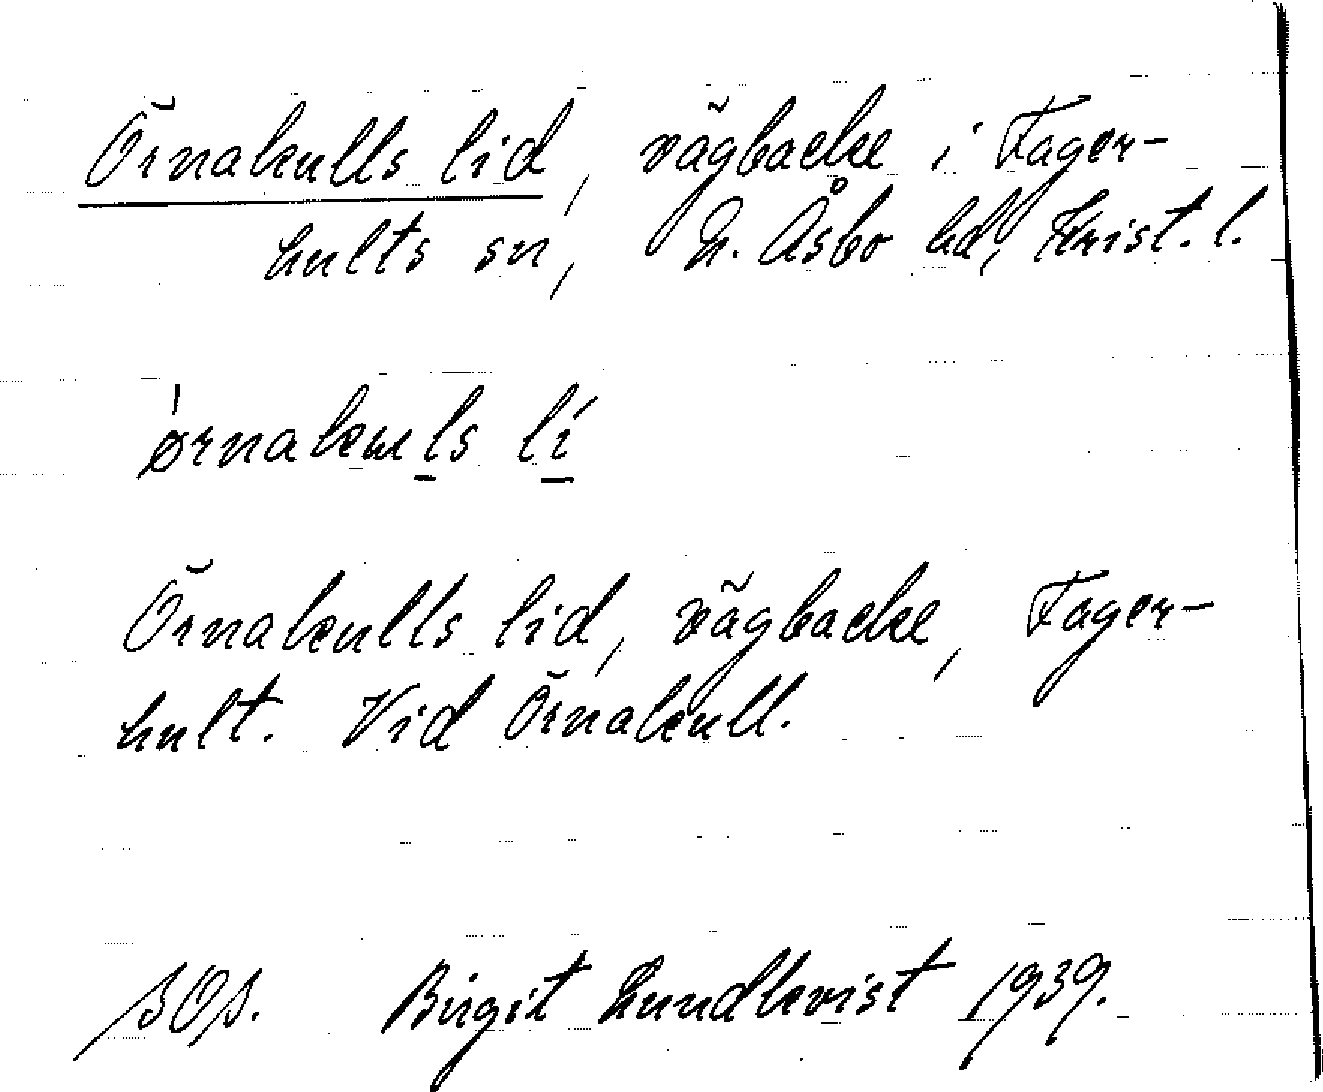 Örnakulls lid, vägbacke i Fager-
hults sn, N. Åsbo hd, Krist. l.
ørnakɯls lí
Örnakulls lid, vägbacke, Fager-
hult. Vid Örnakull.
Birgit Lundkvist 1939.